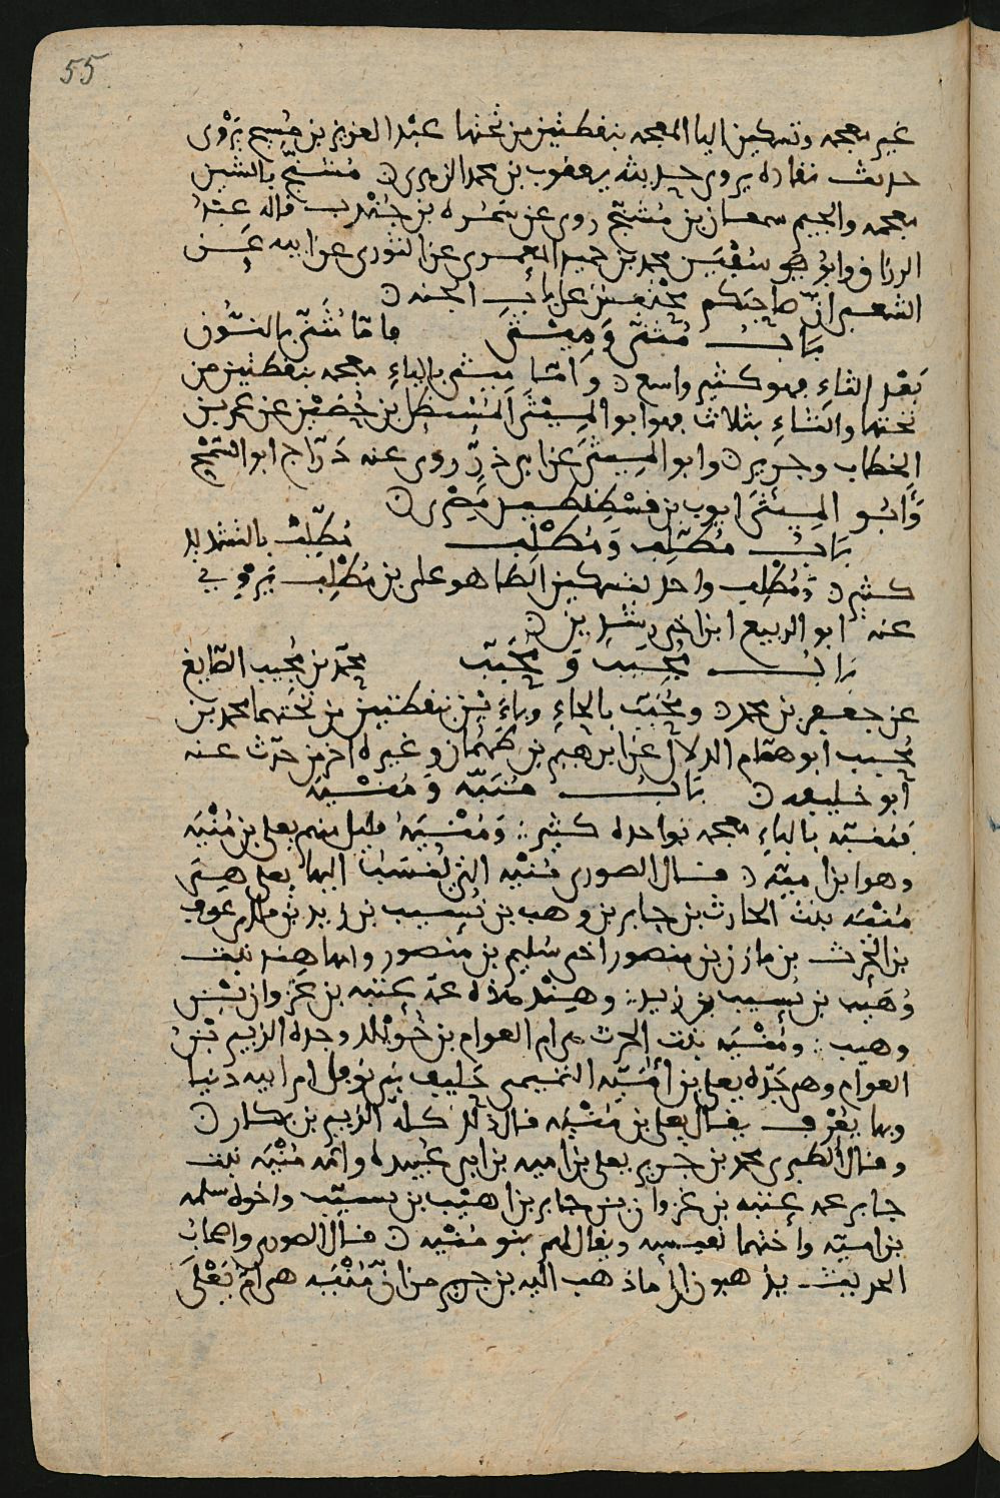 55
غير معجمه وتسكين اليا المعجمه بنقطتين من تحتها عبد العزيز بن مسيح يروى
حديث نقاده يروى حديثه يعقوب بن محمد الزهرى مشنج بالشين
معجمه والجيم سمعان بن مشنج روى عن سمره بن جندب قاله عبد
الرزاق وابو سفين محمد بن حميد المعمرى عن الثورى عن ابيه عن
الشعبى ان صاحبكم محتبس على باب الجنه
باب مثنى وميثى فاما مثنى بالنون
بعد الثاء فهو كثير واسع واما ميثى بالياء معجمه بنقطتين من
تحتها والثاء بثلاث فهو ابو الميثى المستظل بن حصين عن عمر بن
الخطاب وجرير وابو الميثى عن ابى ذر روى عنه دراج ابو السمح
وابو الميثى ايوب بن قسطنطين مصرى
باب مطلب ومطلب مطلب بالتشديد
كثير ومطلب واحد بتسكين الطا هو على بن مطلب يروى
عنه ابو الربيع ابن اخى رشدين
باب مجيب و محبب محمد بن مجيب الصايغ
عن جعفر بن محمد ومحبب بالحاء وباءين بنقطتين من تحتهما محمد بن
محبب ابو همام الدلال عن ابرهيم بن طهمان وغيره اخر من حدث عنه
ابو خليفه باب منبه و منيه
فمنبه بالباء معجمه بواحده كثير ومنيه قليل منهم يعلى بن منيه
وهو ابن اميه قال الصورى منيه التى نسب اليها يعلى هى
منيه بنت الحارث بن جابر بن وهب بن نسيب بن زيد بن ملك بن عوف
بن الحرث بن مازن بن منصور اخى سليم بن منصور وامها هند بنت
وهيب بن نسيب بن زيد وهند هذه عمة عتبه بن غزوان بن
وهيب ومنيه بنت الحرث هى ام العوام بن خويلد وجده الزبير بن
العوام وهى جدة يعلى بن اميه التميمى حليف بنى نوفل ام ابيه دنيا
وبها يعرف يقال يعلى بن منيه قال ذلك كله الزبير بن بكار
وقال الطبرى محمد بن جرير يعلى بن اميه بن ابى عبيده وامه منيه بنت
جابر عمه عتبه بن غزوان بن جابر بن اهيب بن نسيب واخوه سلمه
بن اميه واختهما نفيسه ويقال لهم بنو منيه قال الصورى واصحاب
الحديث يذهبون الى ما ذهب اليه بن جرير من ان منيه هى ام يعلى